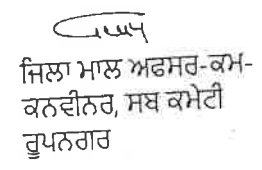 ਜਿਲਾ ਮਾਲ ਅਫਸਰ-ਕਮ-
ਕਨਵੀਨਰ, ਸਬ ਕਮੇਟੀ
ਰੂਪਨਗਰ